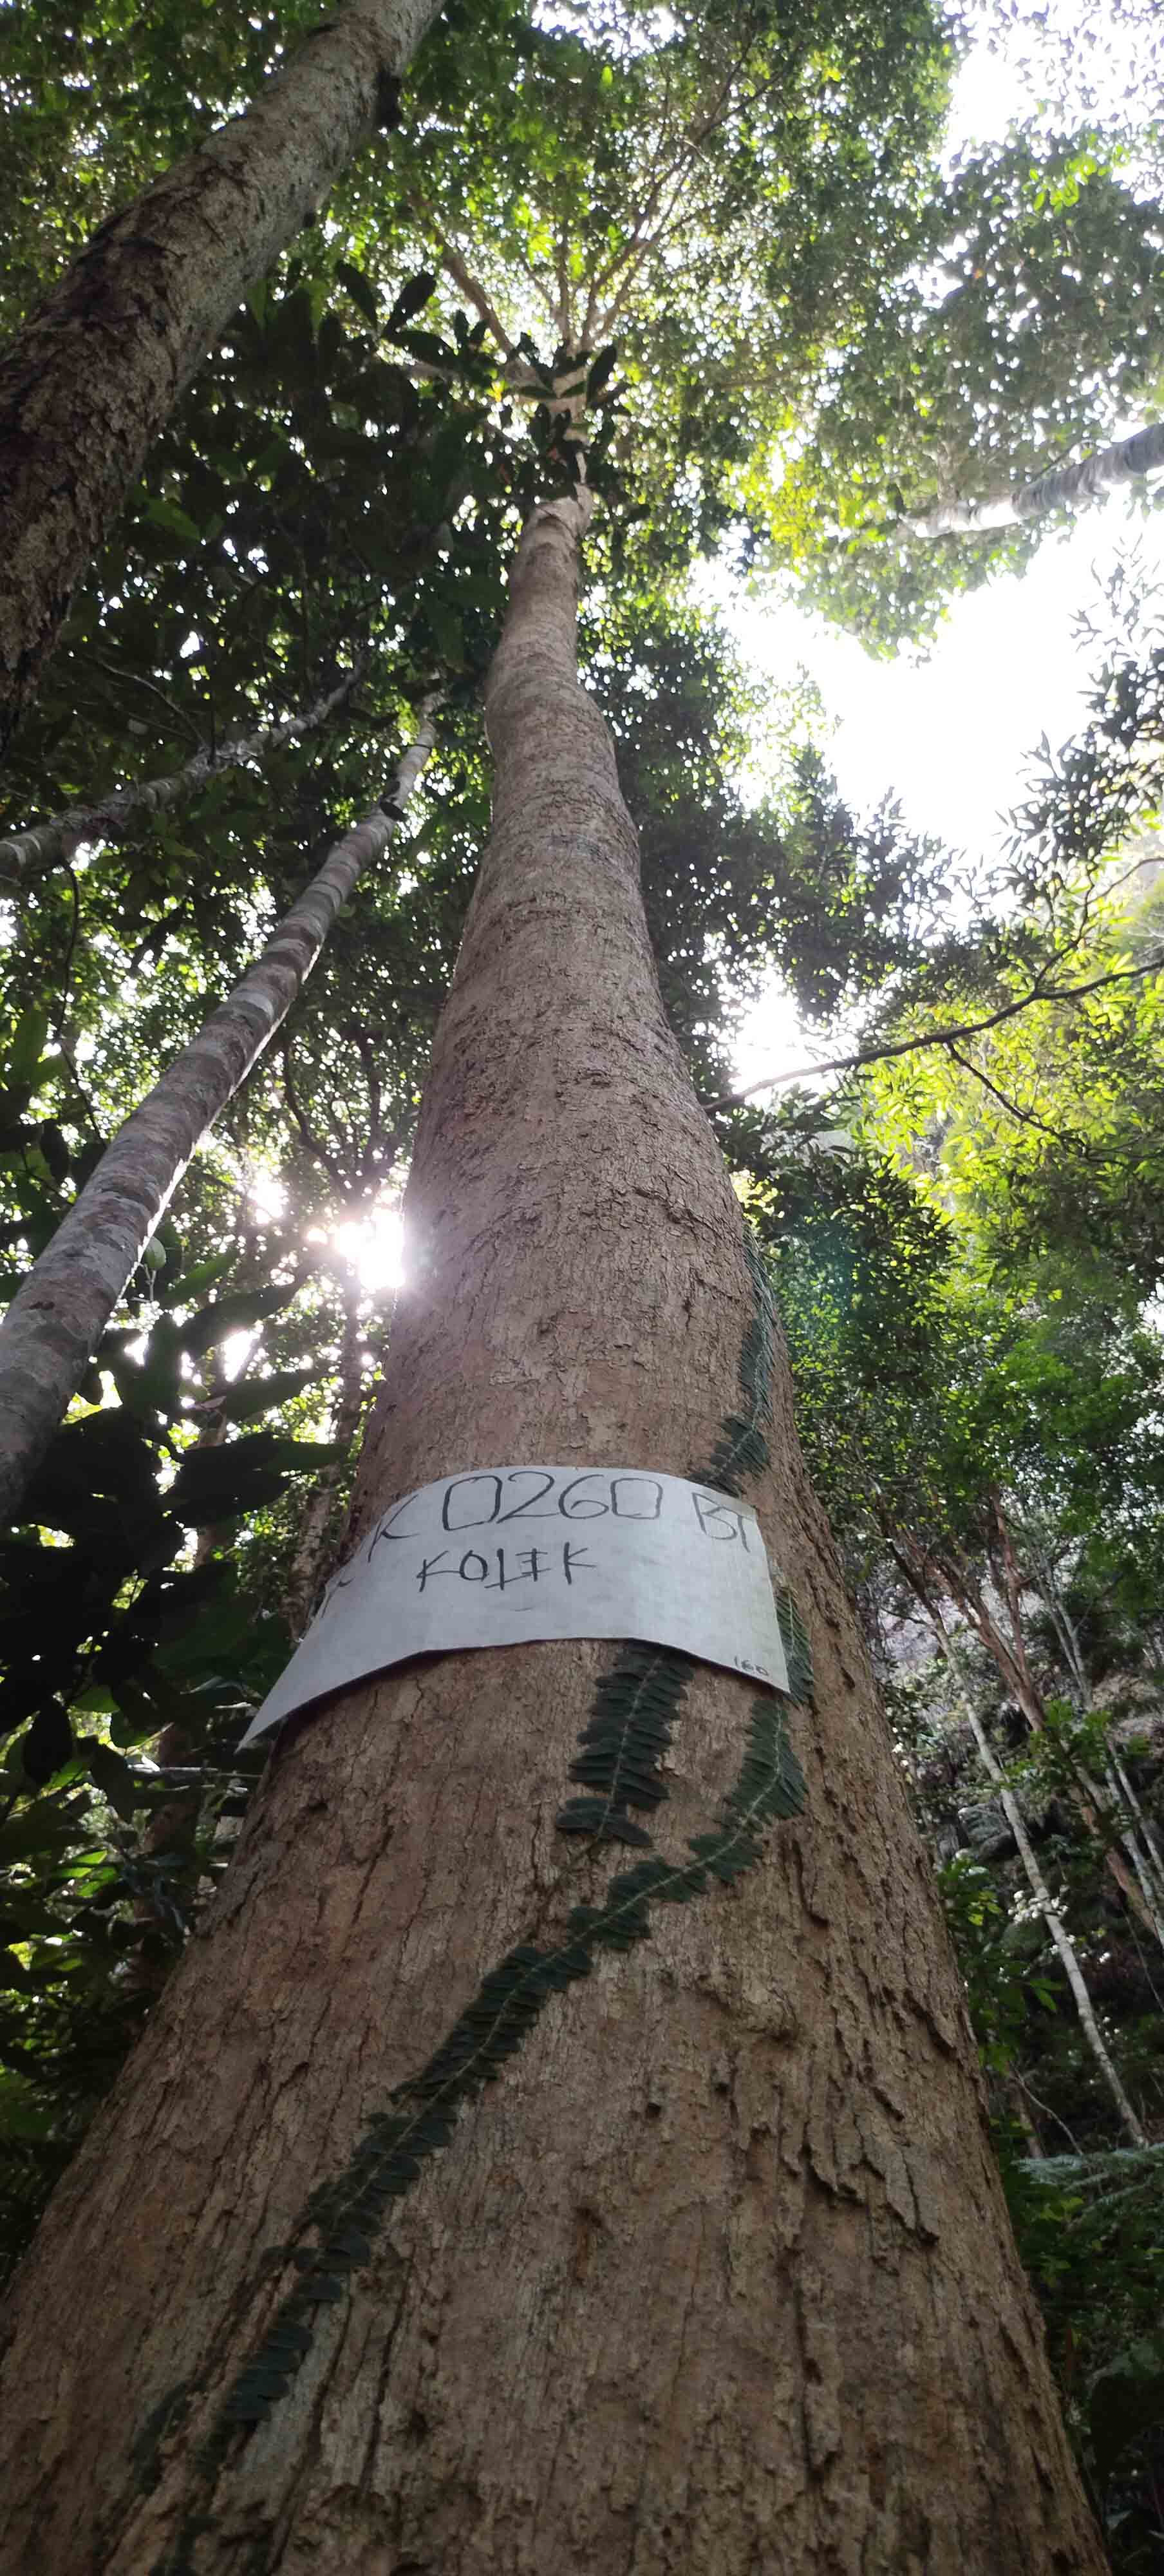 K 0260 BT
KOLEK
160